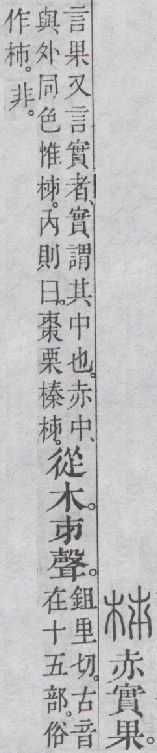 柹 赤實果。
言果又言實者、實謂其中也。赤中、
與外同色惟柹。內則曰。棗栗榛柹。
從木。𠂔聲。
鉏里切。古音
在十五部。俗
作柿。非。